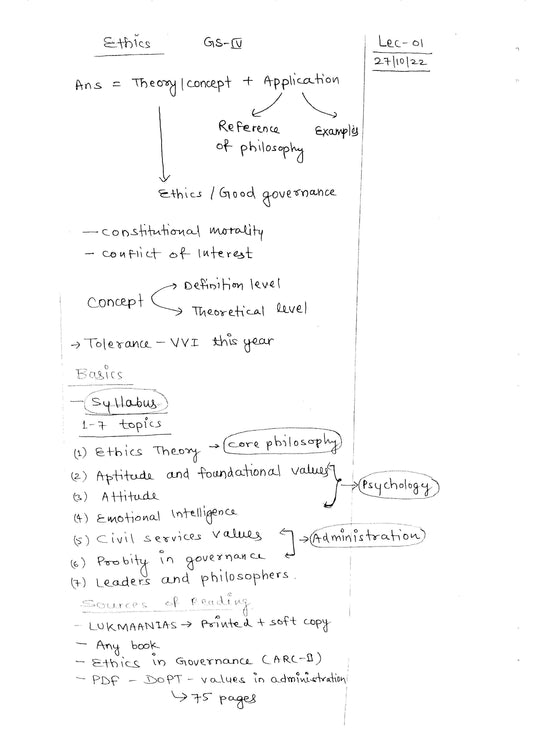 Ethics GS-IV Lec-01
27/10/22
Ans = Theory/concept + Application
Reference of philosophy
Examples
Ethics / Good governance
- constitutional morality
- conflict of Interest
Concept
→ Definition level
→ Theoretical level
→ Tolerance - VVI this year
Basics
- Syllabus
1-7 topics
(1) Ethics Theory → core philosophy
(2) Aptitude and foundational values
(3) Attitude
→ Psychology
(4) Emotional Intelligence
(5) Civil services values
→ Administration
(6) Probity in governance
(7) Leaders and philosophers.
Sources of Reading
- LUKMAANIAS → Printed + soft copy
- Any book
- Ethics in Governance (ARC-II)
- PDF - DOPT - values in administration
↳ 75 pages